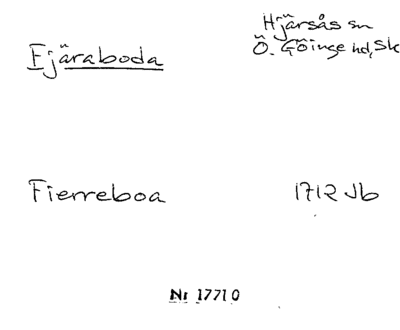 Hjärsås sn
Fjäraboda
Ö. Göinge hd, Sk
Fierreboa
1712 Jb
Nr 17710